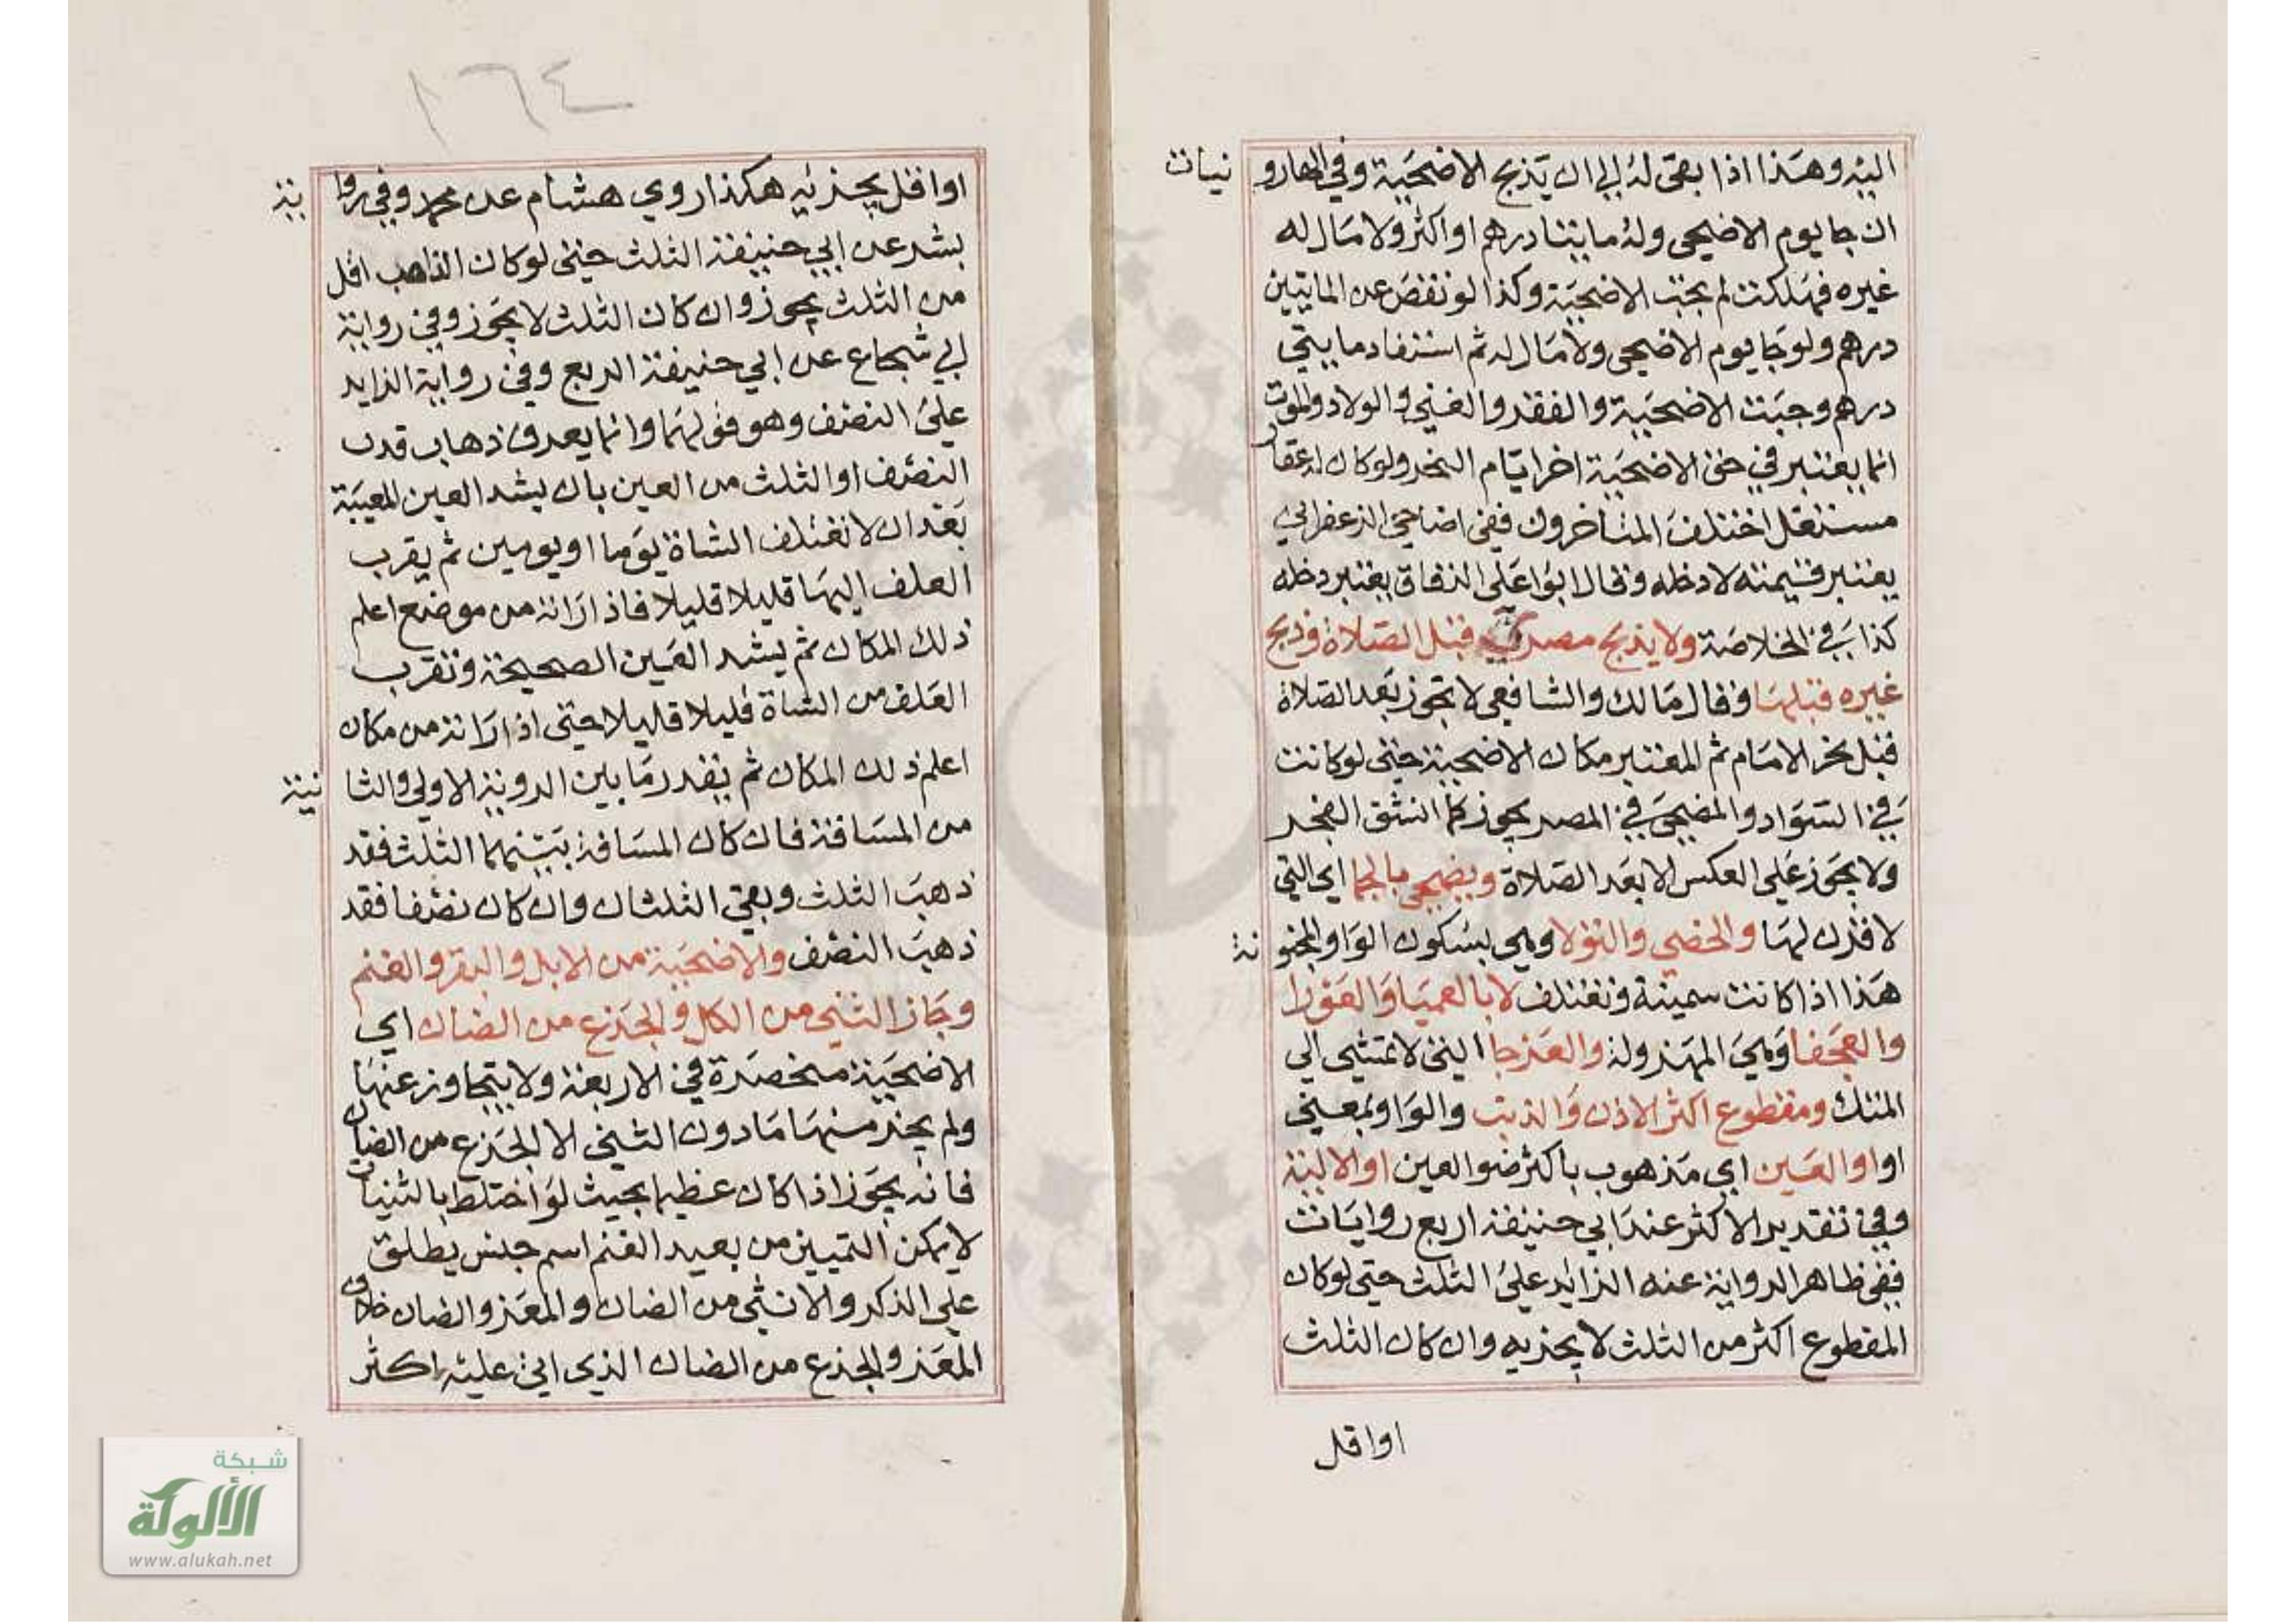 اليه وهذا اذا بقى له الى ان يذبح الاضحية وفي الهارو نيات
ان جا يوم الاضحى وله مايتا درهم او اكثر ولا مال له
غيره فهلكت لم يجب الاضحية وكذا لو نقص عن المايتين
درهم ولو جا يوم الاضحى ولا مال له ثم استفاد مايتي
درهم وجبت الاضحية والفقر والغني والولاد والموت
انما يعتبر في حق الاضحية اخر ايام النحر ولو كان له عقار
مستغل اختلف المتاخرون ففى اضاحي الزعفراني
يعتبر قيمته لا دخله وقال ابو اعلى الدقاق يعتبر دخله
كذا في الخلاصة ولا يذبح مصري قبل الصلاة وذبح
غيره قبلها وقال مالك والشافعي لا تجوز بعد الصلاة
قبل نحر الامام ثم المعتبر مكان الاضحية حتى لو كانت
في السواد والمضحي في المصر يجوز كما انشق الفجر
ولا يجوز على العكس الا بعد الصلاة ويضحي بالجما اي التي
لا قرن لها والخصي والثولا وهي بسكون الواو المجنو نة
هذا اذا كانت سمينة وتعتلف لا بالعميا والعورا
والعجفا وهي المهزولة والعرجا التي لا تمشي الى
المنسك ومقطوع اكثر الاذن والذنب والواو بمعنى
او او العين اي مذهوب باكثر ضو العين او الالية
وفي تقدير الاكثر عند ابي حنيفة اربع روايات
ففى ظاهر الرواية عنه الزايد على الثلث حتى لو كان
المقطوع اكثر من الثلث لا يجزيه وان كان الثلث
او اقل
١٦٤
او اقل يجزئيه هكذا روي هشام عن محمد وفي روا ية
بشر عن ابي حنيفة الثلث حتى لو كان الذاهب اقل
من الثلث يجوز وان كان الثلث لا يجوز وفي رواية
ابي شجاع عن ابي حنيفة الربع وفي رواية الزايد
على النصف وهو قولهما وانما يعرف ذهاب قدر
النصف او الثلث من العين بان يشد العين المعيبة
بعد ان لا تعتلف الشاة يوما او يومين ثم يقرب
العلف اليها قليلا قليلا فاذا راته من موضع اعلم
ذلك المكان ثم يشد العين الصحيحة وتقرب
العلف من الشاة قليلا قليلا حتى اذا راته من مكان
اعلم ذلك المكان ثم يقدر ما بين الروية الاولى والثا نية
من المسافة فان كان المسافة بينهما الثلث فقد
ذهب الثلث وبقي الثلثان وان كان نصفا فقد
ذهب النصف والاضحية من الابل والبقر والغنم
وجاز الثني من الكل والجذع من الضان اي
الاضحية منحصرة في الاربعة ولا يتجاوز عنها
ولم يجز منها ما دون الثني الا الجذع من الضان
فانه يجوز اذا كان عظيما بحيث لو اختلط بالثنيات
لا يمكن التمييز من بعيد الغنم اسم جنس يطلق
على الذكر والانثى من الضان والمعز والضان خلاف
المعز والجذع من الضان الذي اتى عليه اكثر
شبكة
الألوكة
www.alukah.net